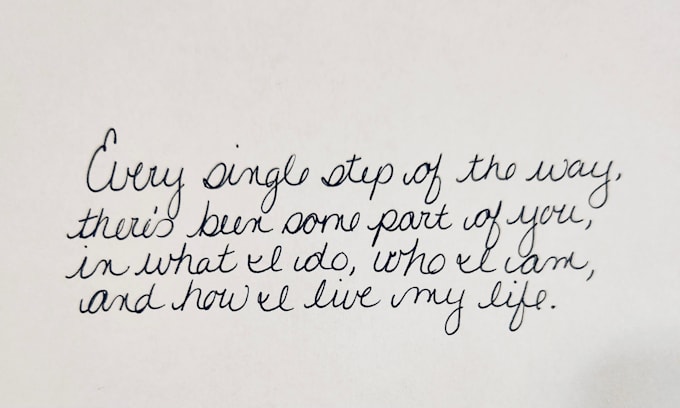 Every single step of the way,
there's been some part of you,
in what I do, who I am,
and how I live my life.